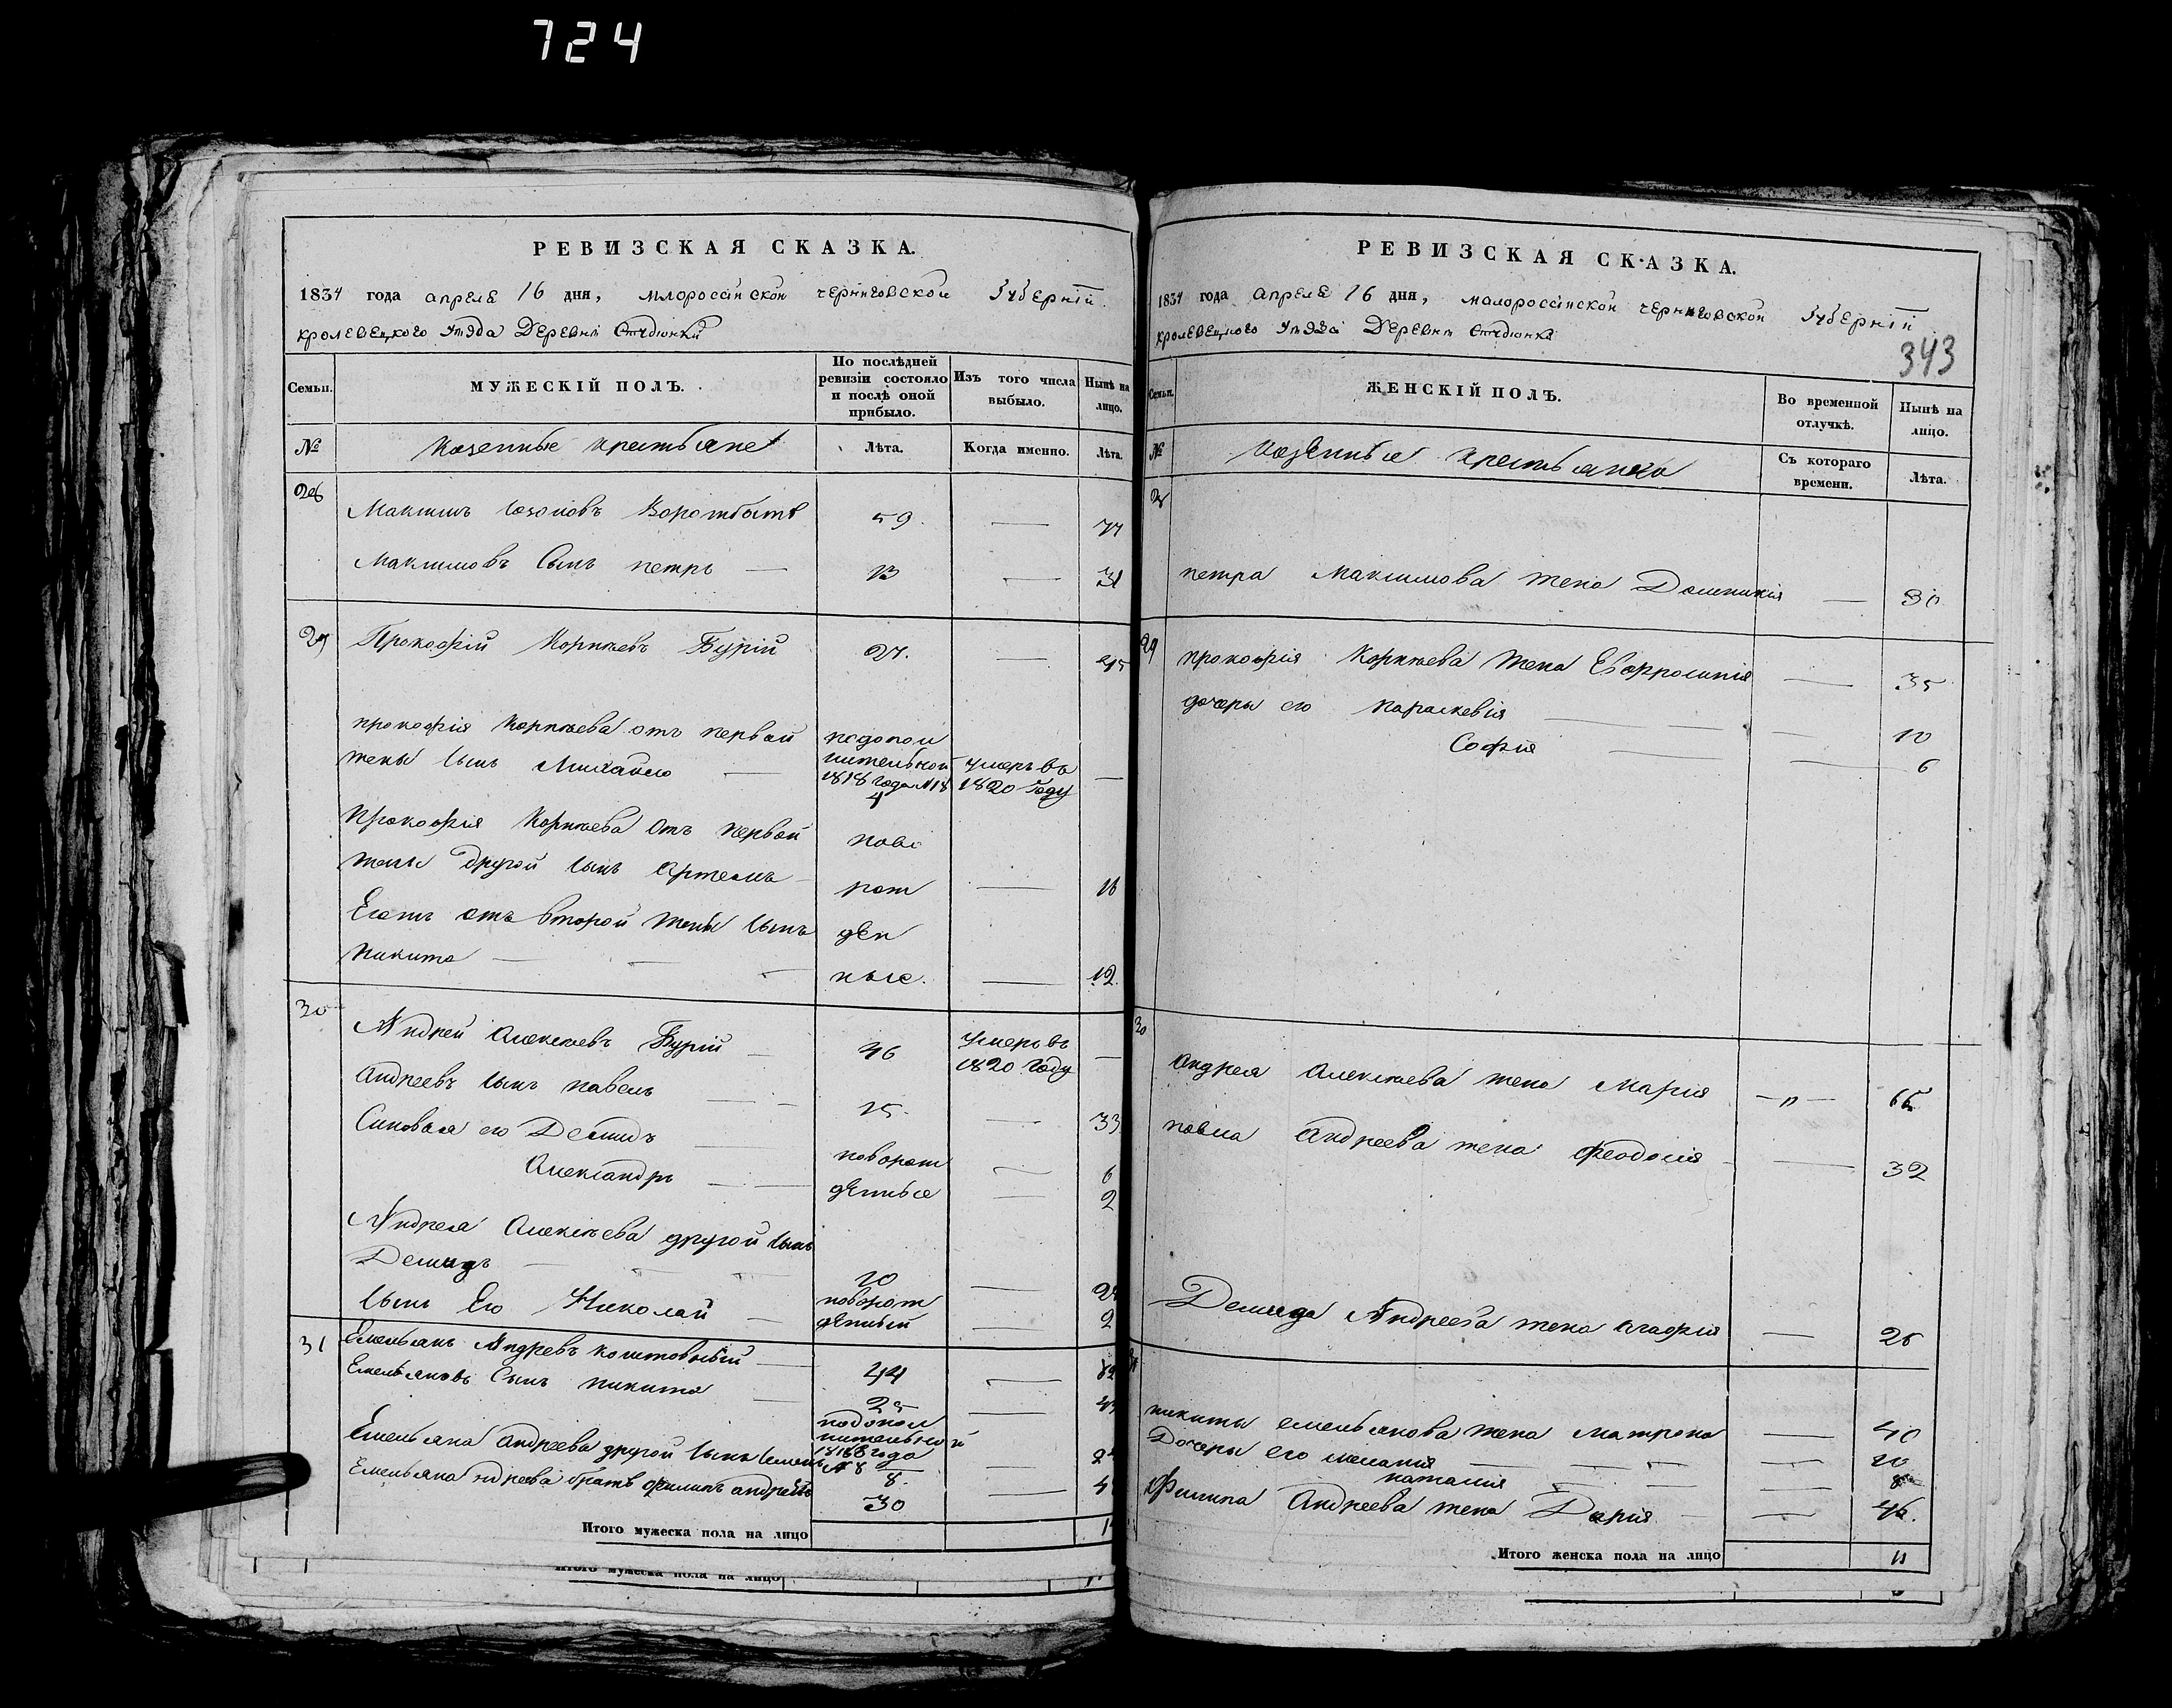 724
РЕВИЗСКАЯ СКАЗКА.
1834 года апреля 16 дня, малоросійской черниговской губерніи
кролевецкого уезда деревни
Семьи. МУЖЕСКІЙ ПОЛЪ. По послѣдней ревизіи состояло и послѣ оной прибыло. Изъ того числа выбыло. Нынѣ на лицо.
№ Казенные крестьяне Лѣта. Когда именно. Лѣта.
28
Максимъ Воротбытъ 59. — 77
Максимовъ Сынъ петръ — 13 — 31
29 Прокофій Корнѣевъ Бурій 27. — 45
прокофія Корнѣева отъ первой подопол
жены сынъ Михайло — нительной умеръ въ
1818 года №18 1820 году —
4
Прокофія Корнѣева отъ первой ново
жены другой сынъ Артемъ рож — 16
Егожъ отъ второй жены сынъ ден
никита — ные. — 12
30 Андрей Алексѣевъ Бурій — 46 умеръ въ
1820 году —
Андреевъ сынъ павелъ — 15. — 33
Синовья его Демидъ — новорож — 6
Александръ — денные — 2
Андрея Алексѣева другой сынъ
Демидъ — 10 —
сынъ Его Николай — новорож
денный — 2
31 Емельянъ Андревъ — 44 —
Емельяновъ Сынъ никита — 25 —
подопол
нительной
Емельяна Андреева другой сынъ 1818 года
№ 8 8. —
Емельяна андреева братъ филипъ андреевъ 30 —
Итого мужеска пола на лицо
Итого мужеска пола на лицо
РЕВИЗСКАЯ СКАЗКА.
1834 года апреля 16 дня, малоросійской черниговской губерніи
кролевецкого уезда деревни
343
Семьи. ЖЕНСКІЙ ПОЛЪ. Во временной отлучкѣ. Нынѣ на лицо.
№ Казенные крестьянки Съ котораго времени. Лѣта.
28
петра Максимова жена Домникія — 30
29 прокофія Корнѣева жена Евфросинія — 35
дочеры его параскевія — 10
Софія — 6
30
андрея алексѣева жена Марія — 65
павла андреева жена феодосія — 32
Демида Андреева жена агафія — 26
31
никиты емельянова жена Матрона — 40
Дочеры его меланія — 10
наталія — 8
филипа андреева жена Дарія — 46.
Итого женска пола на лицо 11